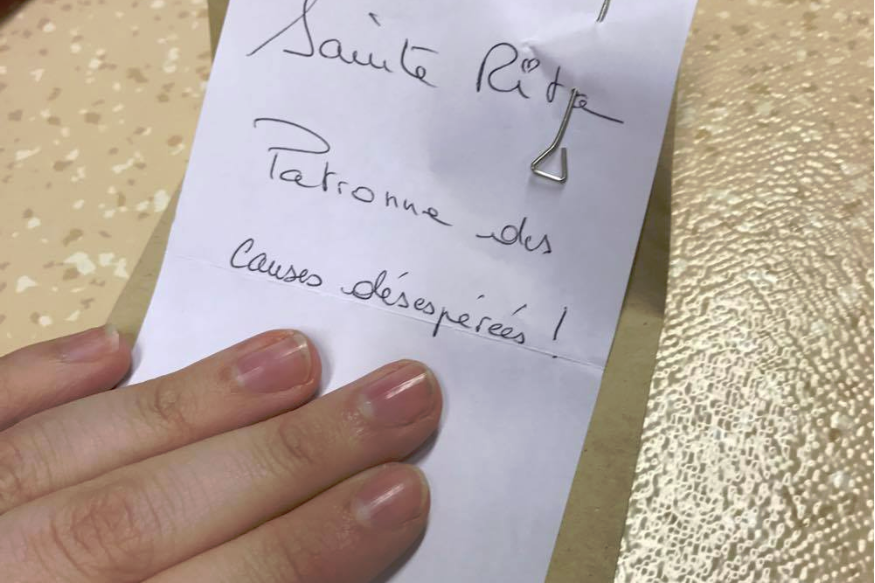 Sainte Rita
Patronne des
causes désespérées !